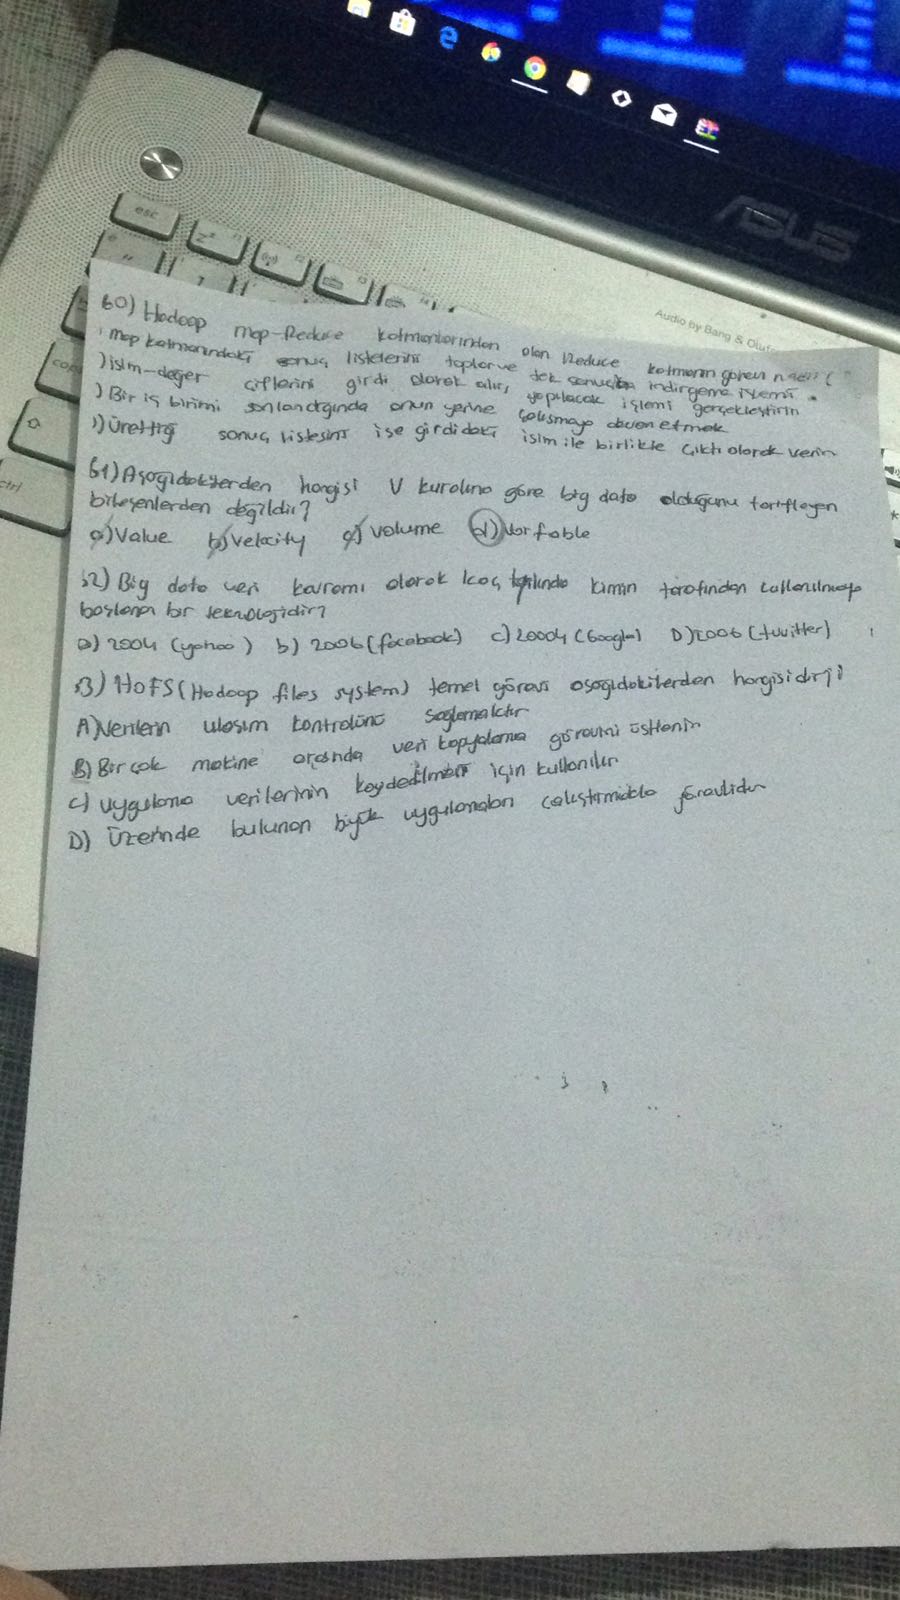 ASUS
Audio by Bang & Olufs
esc
60) Hadoop Map-Reduce katmanlarından olan Reduce katmanın görevi nedir?
) Map katmanındaki sonuç listelerini toplar ve tek sonuca indirgeme işlemi
) isim-değer çiftlerini girdi olarak alır, yapılacak işlemi gerçekleştirin
) Bir iş birimi sonlandığında onun yerine çalışmaya devam etmek
) Ürettiği sonuç listesini ise girdideki isim ile birlikte çıktı olarak verin
61) Aşağıdakilerden hangisi V kuralına göre big data olduğunu tarifleyen
bileşenlerden değildir?
a) Value b) velocity c) volume d) Varfable
62) Big data veri kavramı olarak kaç kimin tarafından kullanılmaya
başlanan bir teknolojidir?
a) 2004 (yahoo) b) 2006 (facebook) c) 20004 (Google) D) 2006 (twitter)
63) HDFS (Hadoop files system) temel görevi aşağıdakilerden hangisidir?
A) Verilerin ulaşım kontrolünü sağlamaktır
B) Bir çok makine arasında veri kopyalama görevini üstlenir
C) Uygulama verilerinin kaydedilmesi için kullanılır
D) Üzerinde bulunan büyük uygulamaları çalıştırmakla görevlidir